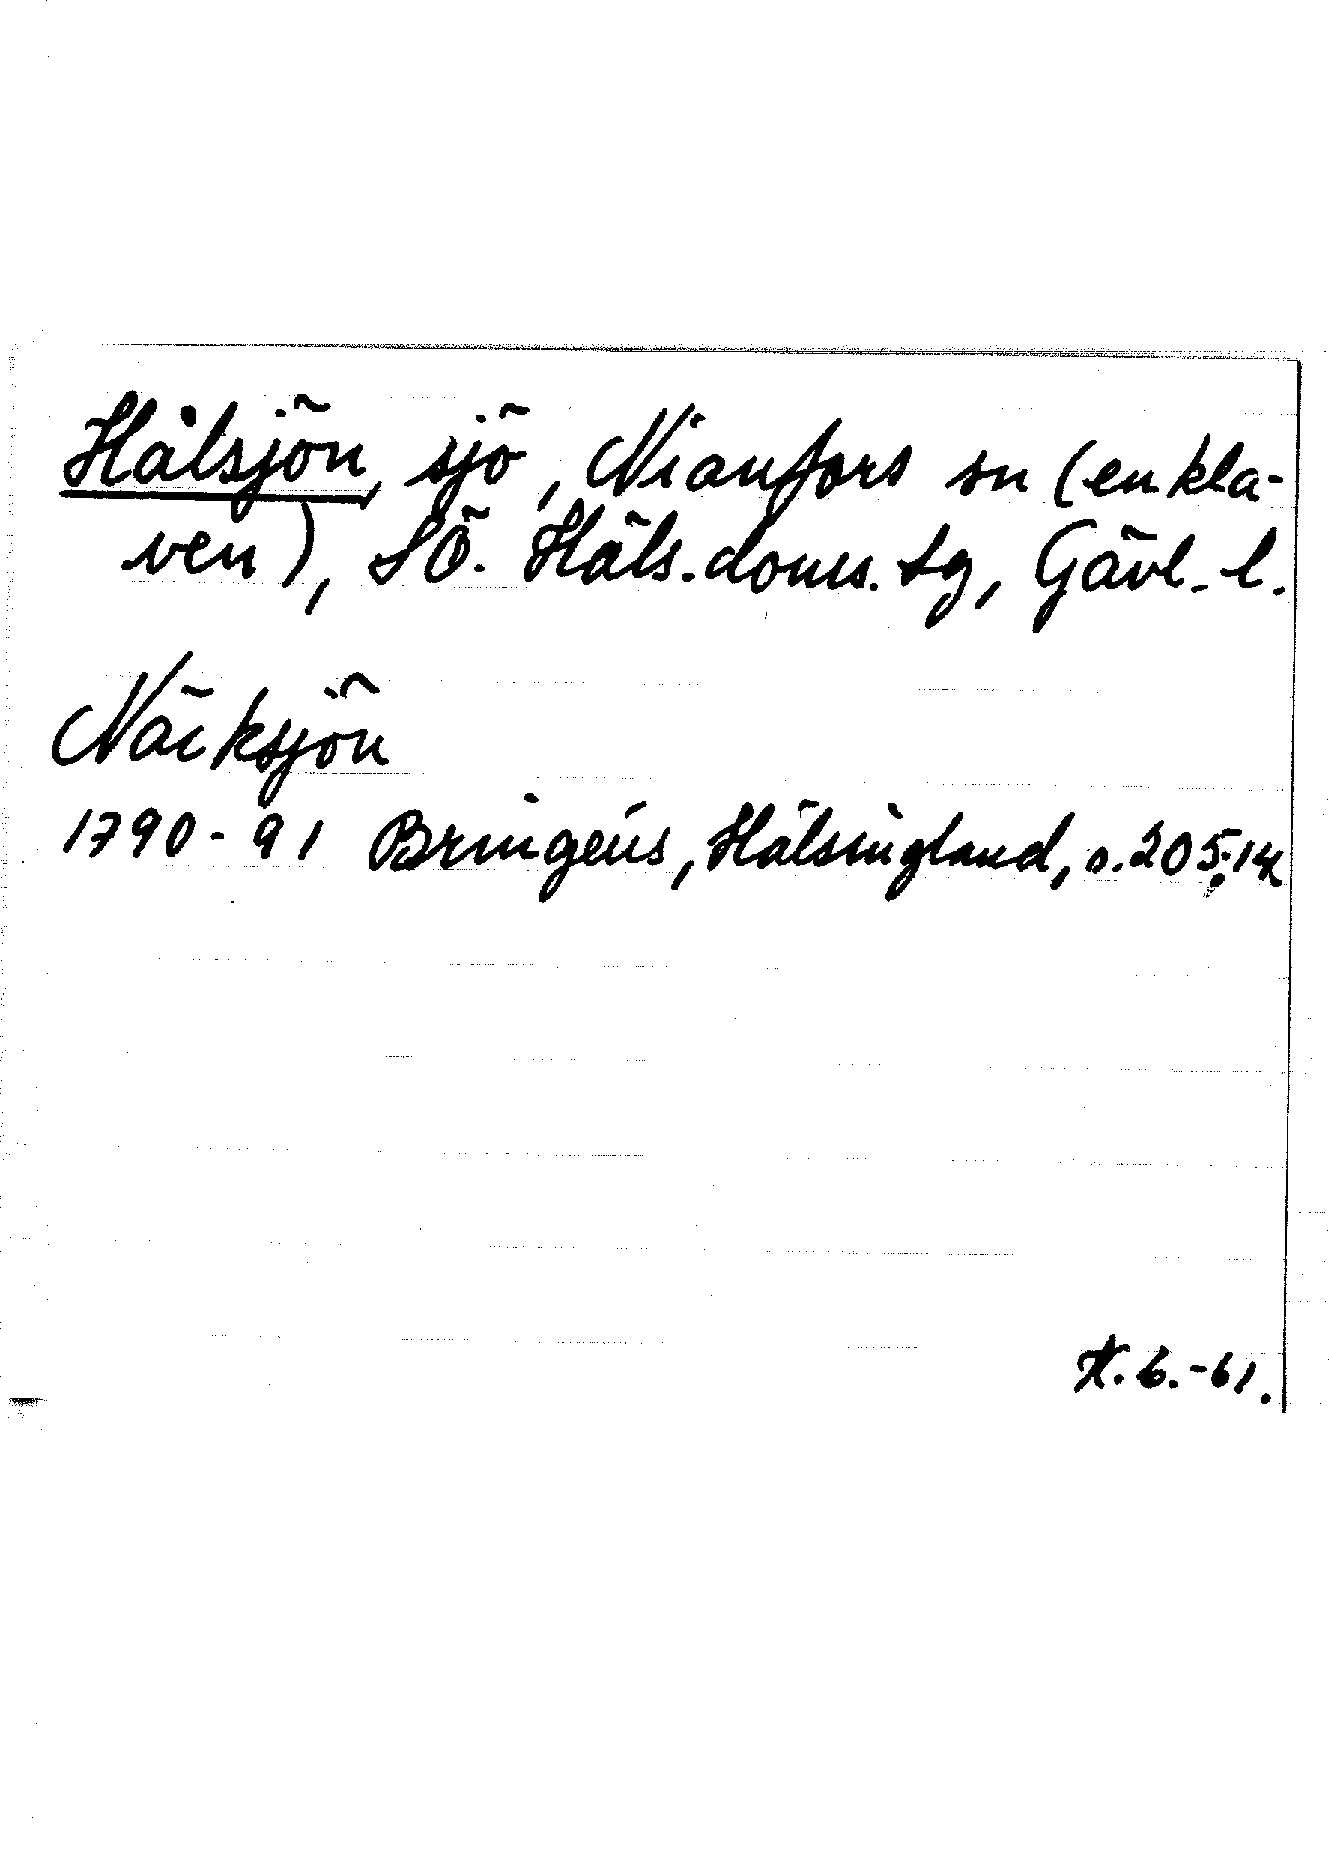 Hålsjön, sjö, Nianfors sn (enkla-
ven), SÖ. Häls. doms. tg, Gävl. l.
Näcksjön
1790-91 Bringéus, Hälsingland, s. 205;
6.-61.